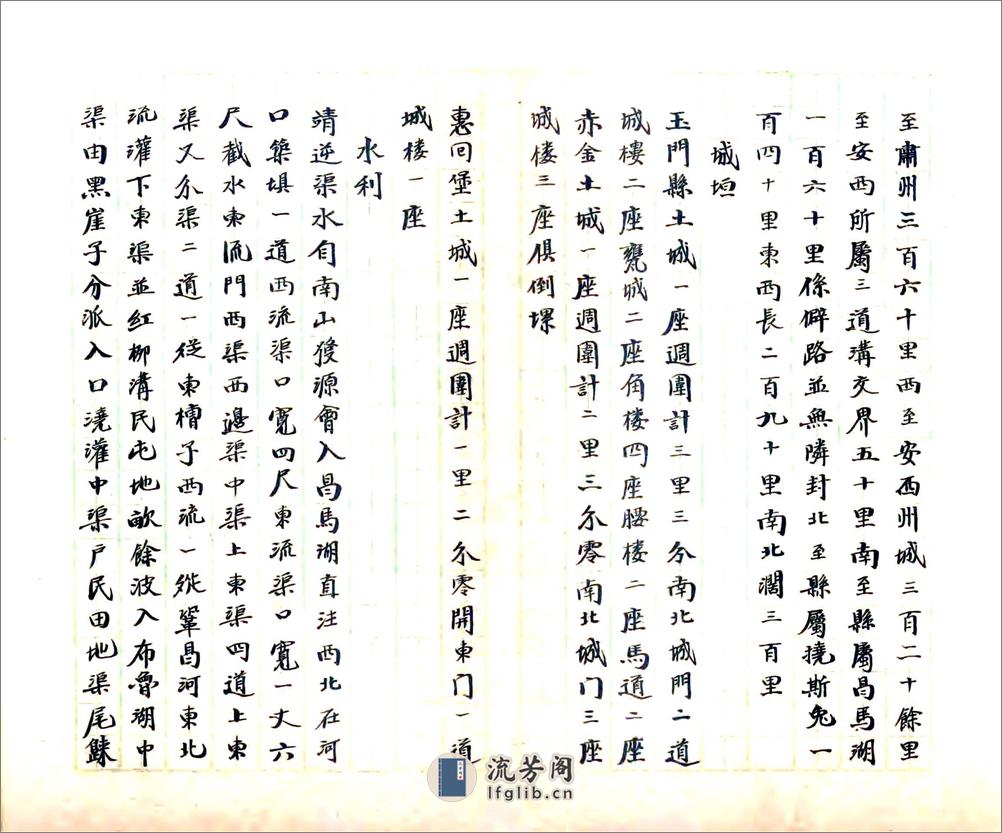 至肅州三百六十里西至安西州城三百二十餘里
至安西所屬三道溝交界五十里南至縣屬昌馬湖
一百六十里係僻路並無隣封北至縣屬撓斯兔一
百四十里東西長二百九十里南北濶三百里
城垣
玉門縣土城一座週圍計三里三分南北城門二道
城樓二座甕城二座角楼四座腰楼二座馬道二座
赤金土城一座週圍計二里三分零南北城门三座
城楼三座俱倒塌
惠回堡土城一座週圍計一里二分零開東门一道
城楼一座
水利
靖逆渠水自南山後源會入昌馬湖直注西北在河
口築埧一道西流渠口寬四尺東流渠口寬一丈六
尺截水東流門西渠西邊渠中渠上東渠四道上東
渠又分渠二道一從東槽子西流一從鞏昌河東北
流灌下東渠並紅柳溝民屯地畝餘波入布魯湖中
渠由黑崖子分派入口澆灌中渠戸民田地渠尾
流芳阁
lfglib.cn